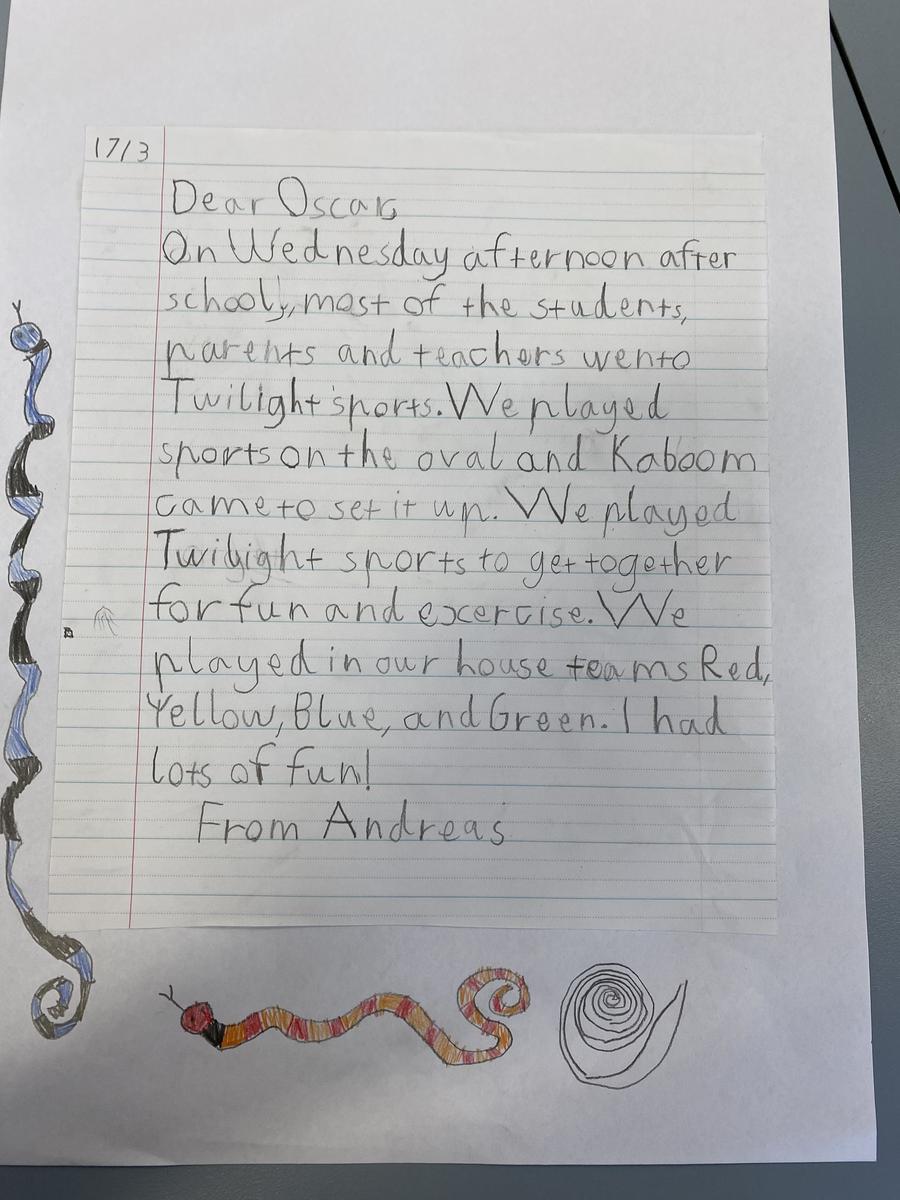 17/3
Dear Oscar,
On Wednesday afternoon after
school, most of the students,
parents and teachers wento
Twilight sports. We played
sports on the oval and Kaboom
came to set it up. We played
Twilight sports to get together
for fun and excercise. We
played in our house teams Red,
Yellow, Blue, and Green. I had
lots of fun!
From Andreas